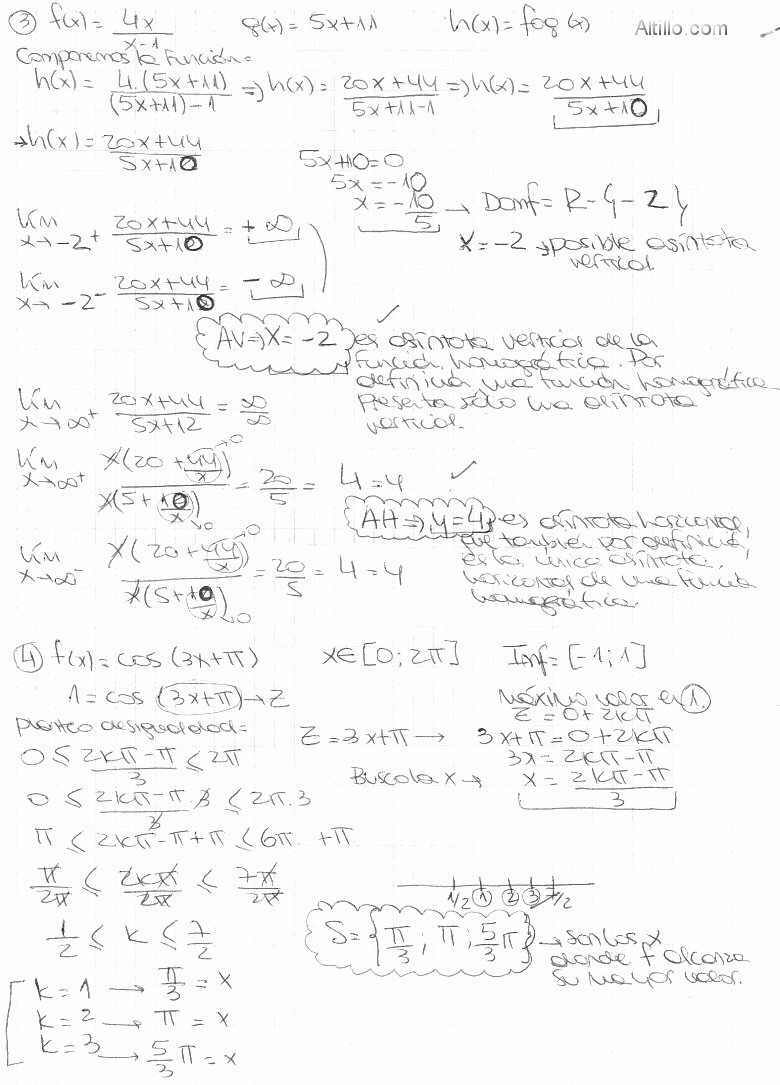 ③ f(x) = 4x/(x-1) g(x) = 5x+11 h(x) = fog(x) Altillo.com
Componemos la función =
h(x) = 4.(5x+11)/((5x+11)-1) => h(x) = (20x+44)/(5x+11-1) => h(x) = (20x+44)/(5x+10)
→ h(x) = (20x+44)/(5x+10) 5x+10=0
5x = -10
x = -10/5 → Domf = R - {-2}
x = -2 → posible asíntota vertical
Lím x→-2⁺ (20x+44)/(5x+10) = +∞
Lím x→-2⁻ (20x+44)/(5x+10) = -∞
AV => X = -2 es asíntota vertical de la
función homográfica. Por
definición, una función homográfica
presenta sólo una asíntota
vertical.
Lím x→∞⁺ (20x+44)/(5x+12) = ∞/∞
Lím x→∞⁺ x(20+44/x)/x(5+10/x) = 20/5 = 4 = 4
AH => y = 4 es asíntota horizontal,
que también por definición,
es la única asíntota
horizontal de una función
homográfica.
Lím x→∞⁻ x(20+44/x)/x(5+10/x) = 20/5 = 4 = 4
④ f(x) = cos (3x+π) x∈[0; 2π] Imf = [-1; 1]
1 = cos (3x+π) → Z Máximo valor es 1.
Z = 0+2kπ
Planteo desigualdad =
Z = 3x+π → 3x+π = 0+2kπ
3x = 2kπ-π
Busco la x → x = (2kπ-π)/3
0 ≤ (2kπ-π)/3 ≤ 2π
0 ≤ (2kπ-π)/3 . 3 ≤ 2π.3
π ≤ 2kπ-π+π ≤ 6π +π
π/2π ≤ 2kπ/2π ≤ 7π/2π
1/2 ≤ k ≤ 7/2
1/2 ① ② ③ 7/2
S = {π/3; π; 5/3 π} → son los x
donde f alcanza
su mayor valor.
k = 1 → π/3 = x
k = 2 → π = x
k = 3 → 5/3 π = x